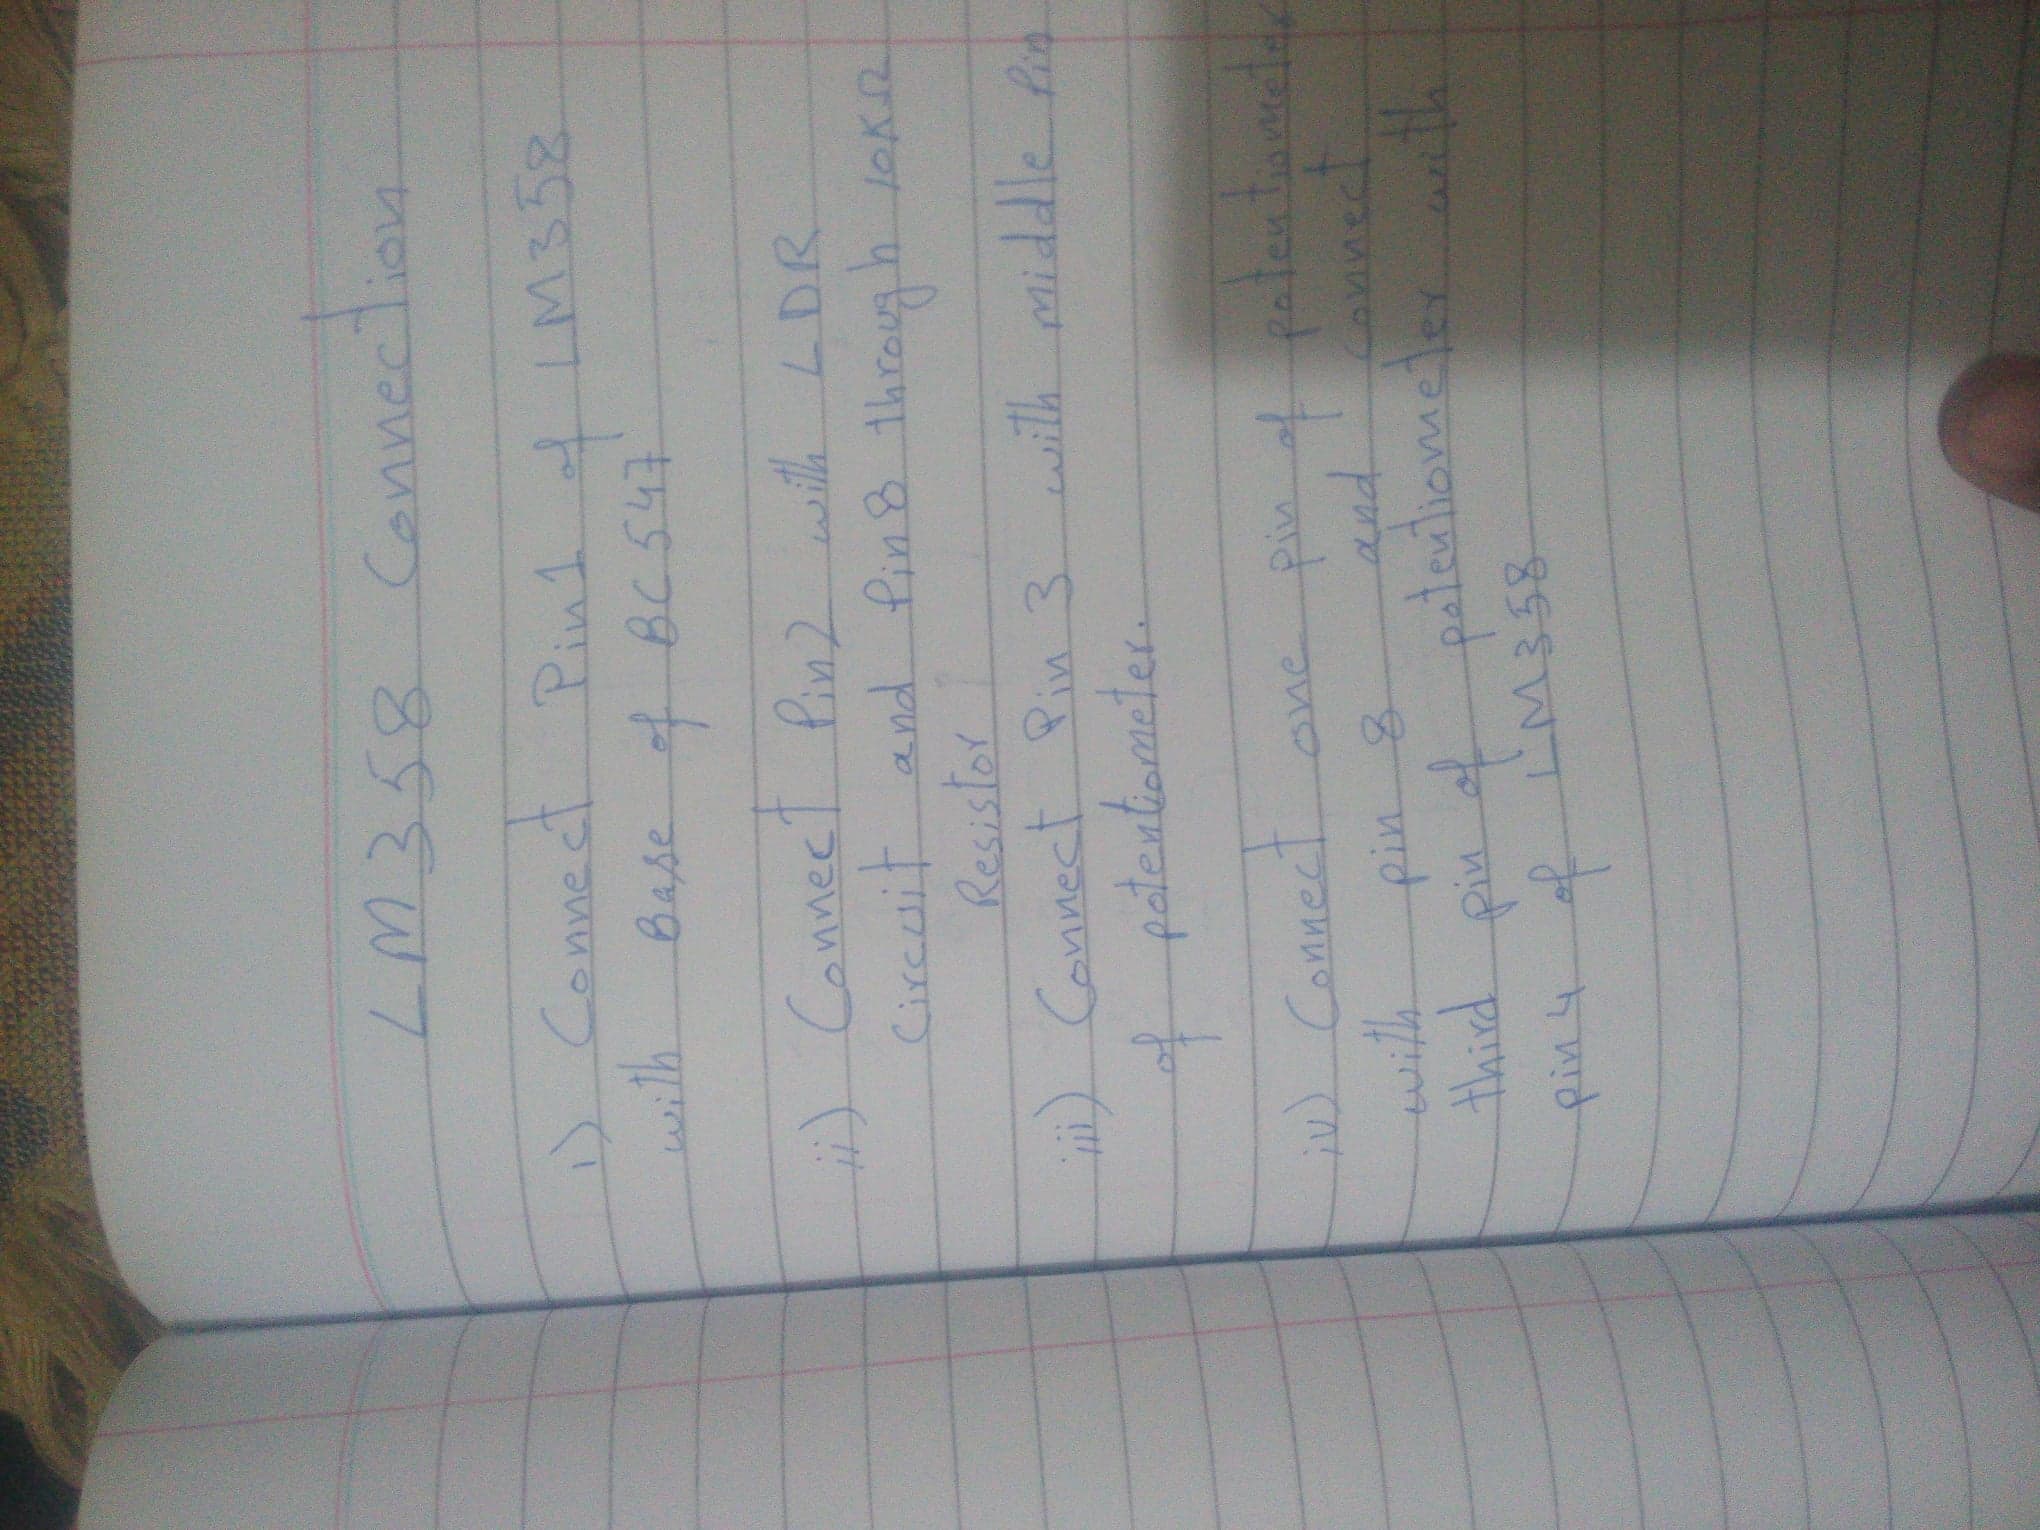 LM358 Connection
i) Connect Pin1 of LM358
with Base of BC547
ii) Connect Pin2 with LDR
Circuit and Pin8 through 10KΩ
Resistor
iii) Connect Pin 3 with middle Pin
of potentiometer.
iv) Connect one pin of potentiometer
with pin 8 and connect
third pin of potentiometer with
pin 4 of LM358